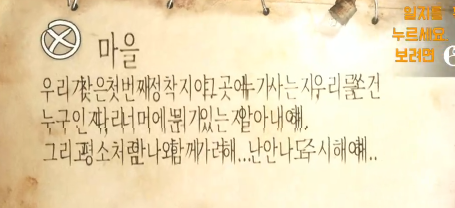 일지를
누르세요
보려면
마을
우리가 찾은 첫 번째 정착지야. 그곳에 누가 사는지, 우리를 쏜 건
누구인지, 다리 너머에 뭐가 있는지 알아내야 해,
그리고 평소처럼 안나와 함께 가려 해...난 안나도 주시해야 해..